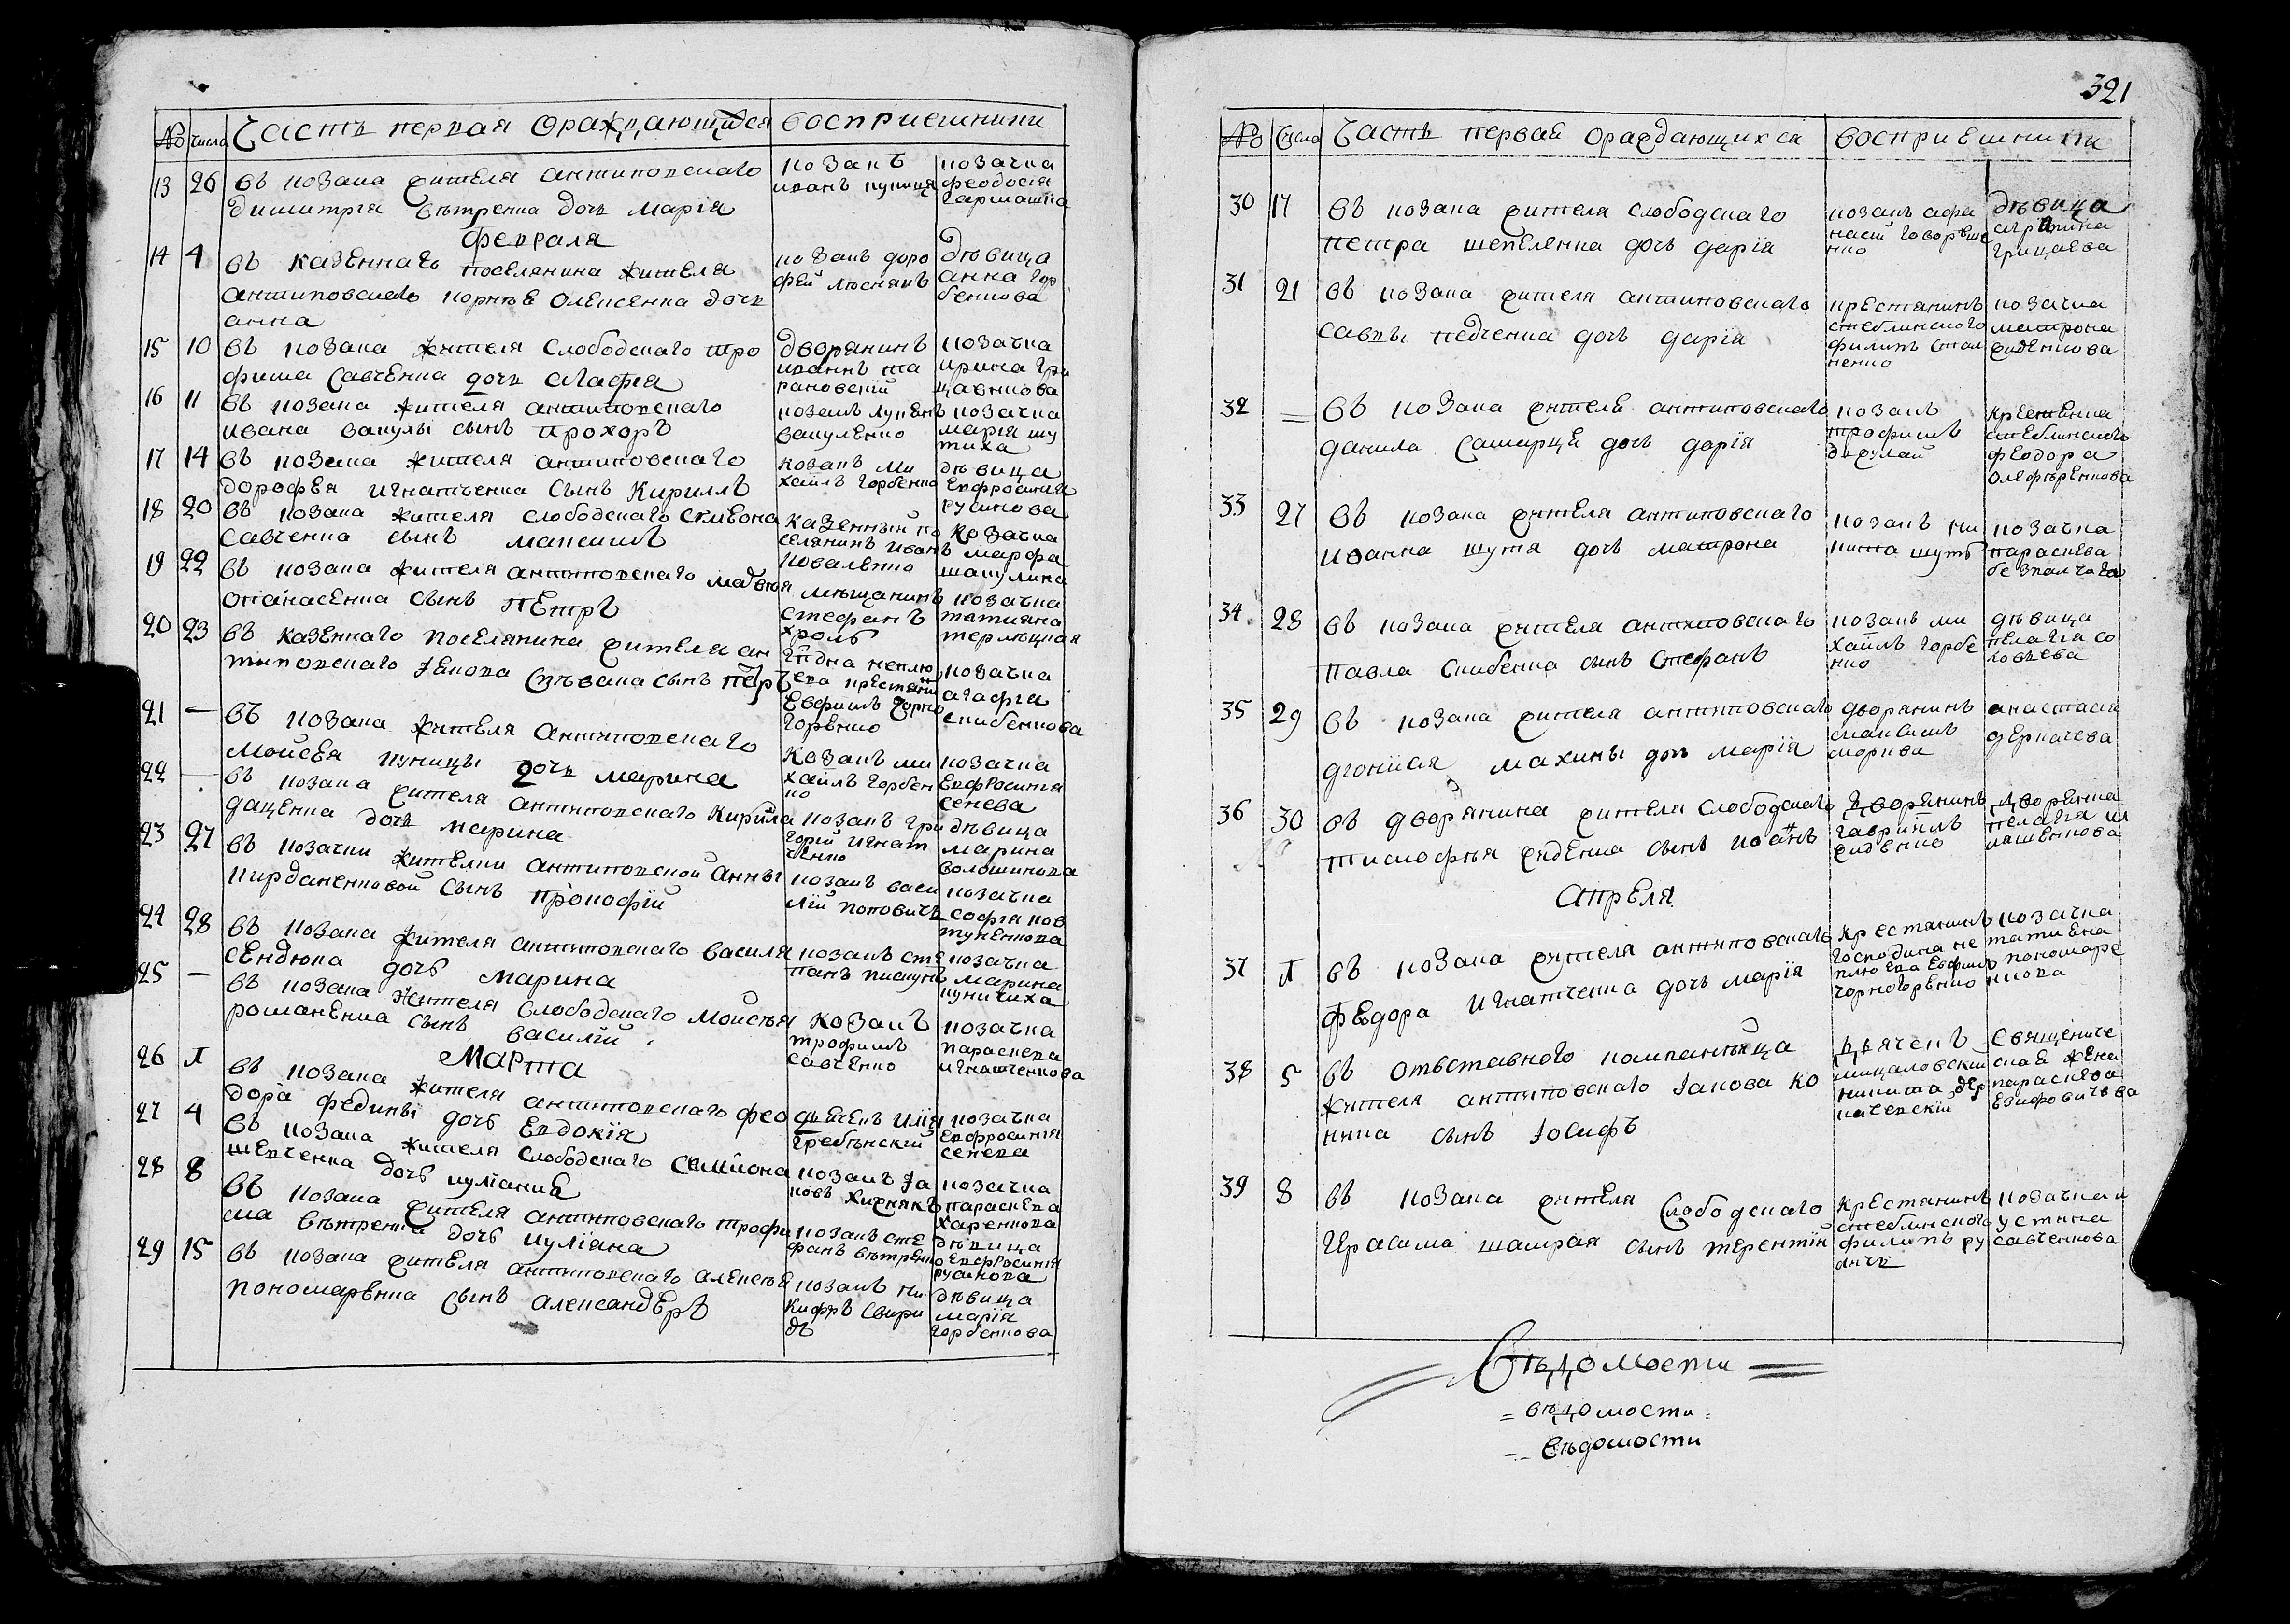 № Числа Часть первая ораждающихся восприемники
13 26 въ козака жителя антиповскаго
димитрія вѣтренка дочь марія
козакъ
иванъ куница
козачка
феодосія
гармашка
февраля
14 4 въ казеннаго поселянина жителя
антиповскаго корнѣе олексенка дочь
анна
козакъ доро
фей люснякъ
дѣвица
анна гор
бенкова
15 10 въ козака жителя слободскаго тро
фима савченка дочь агафія
дворянинъ
иваннъ та
рановскій
козачка
ирина гри
цаенкова
16 11 въ козака жителя антиповскаго
ивана вакулы сынъ прохоръ
козакъ лукьянъ
вакуленко
козачка
марія шу
тиха
17 14 въ козака жителя антиповскаго
дорофея игнатченка сынъ кириллъ
козакъ ми
хаилъ горбенко
дѣвица
евфросинія
русинова
18 20 въ козака жителя слободскаго симеона
савченка сынъ максимъ
казенный по
селянинъ иванъ
коваленко
козачка
марфа
шакулина
19 22 въ козака жителя антиповскаго мадвѣя
опанасенка сынъ петръ
мѣщанинъ
стефанъ
хроль
козачка
татияна
20 23 въ казеннаго поселянина жителя ан
типовскаго Іакова сын петръ
гпдна неплю
ева крестянин
евфимъ чорно
горенко
козачка
агафія
скибенкова
21 — въ козака жителя антиповскаго
мойсея куницы дочь марина
козакъ ми
хаилъ горбен
ко
козачка
евфросинія
сенева
22 — въ козака жителя антиповскаго кирила
даценка дочь марина
козакъ гри
горій игнат
ченко
дѣвица
марина
волошинова
23 27 въ козачки жителки антиповской анны
кирданенковой сынъ прокофій
козакъ васи
лій поповичь
козачка
софія ков
туненкова
24 28 въ козака жителя антиповскаго василя
сендюка дочь марина
козакъ сте
панъ пискунъ
козачка
марина
куничиха
25 — въ козака жителя слободскаго мойсея
романенка сынъ василій
козакъ
трофимъ
савченко
козачка
параскева
игнатченкова
Марта
26 1 въ козака жителя антиповскаго фео
дора федины дочь евдокія
гребѣнскій
козачка
евфросинія
сенева
27 4 въ козака жителя слободскаго симиона
шевченка дочь иуліанія
козакъ Іа
ковъ хижнякъ
козачка
параскева
харенкова
28 8 въ козака жителя антиповскаго трофи
ма вѣтренка дочь иуліана
козакъ сте
фанъ вѣтренко
дѣвица
евфросинія
русинова
29 15 въ козака жителя антиповскаго алексѣя
пономаренка сынъ александеръ
козакъ ни
кифръ свири
дъ
дѣвица
марія
горбенкова
321
№ Числа Часть первая ораждающихся восприемники
30 17 въ козака жителя слободскаго
петра шепеленка дочь дарія
козакъ афа
насій говорѣше
нко
дѣвица
агрепина
грицаева
31 21 въ козака жителя антиповскаго
саввы педченка дочь дарія
крестянинъ
стеблинскаго
филипъ стол
ненко
козачка
матрона
жиденкова
32 = въ козака жителя антиповскаго
данила самарце дочь дарія
козакъ
трофимъ
держай
крестянка
стеблинскаго
феодора
олеференкова
33 27 въ козака жителя антиповскаго
иванна шутя дочь матрона
козакъ ни
кита шуть
козачка
параскева
безпалчага
34 28 въ козака жителя антиповскаго
павла скибенка сынъ стефанъ
козакъ ми
хаилъ горбе
нко
дѣвица
пелагія со
ковьева
35 29 въ козака жителя антиповскаго
дтонія махины дочь марія
дворянинъ
максимъ
анастасія
деркачева
36 30 въ дворянина жителя слободскаго
тимофѣя жиденка сынъ иоанъ
дворянинъ
гавріилъ
жиденко
дворянка
пелагія ил
яшенкова
Апреля
37 1 въ козака жителя антиповскаго
федора игнатченка дочь марія
крестянинъ
господина не
плюева евфимъ
чорногоренко
козачка
татиена
пономаре
нкова
38 5 въ отвставного компанѣйца
жителя антиповскаго Іакова ко
ника сынъ Іосифъ
дячекъ
мицаловскій
никита дер
качевскій
священиче
ская жена
параскева
езифовичева
39 8 въ козака жителя слободскаго
ирасима шамрая сынъ терентій
крестянинъ
стеблинскаго
филипъ ру
дичь
козачка
устина
савченкова
Вѣдомости
= вѣдомости =
-- вѣдомости